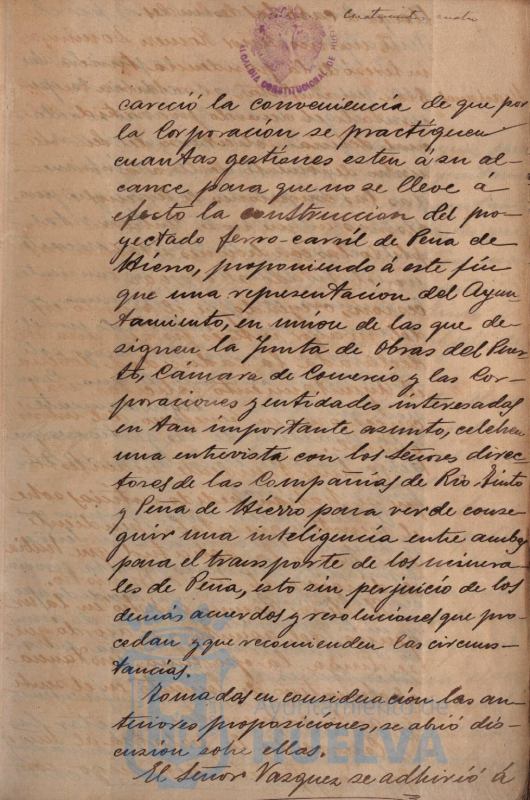 Cuatrocientos cuatro
ALCALDIA CONSTITUCIONAL DE
careció la conveniencia de que por
la Corporación se practiquen
cuantas gestiones esten á su al-
cance para que no se lleve á
efecto la construccion del pro-
yectado ferro-carril de Peña de
Hierro, proponiendo á este fin
que una representacion del Ayun-
tamiento, en unión de las que de-
signen la Junta de Obras del Puer-
to, Cámara de Comercio y las Cor-
poraciones y entidades interesadas
en tan importante asunto, celebren
una entrevista con los Señores direc-
tores de las Compañias de Rio-Tinto
y Peña de Hierro para ver de conse-
guir una inteligencia entre ambas
para el transporte de los minera-
les de Peña, esto sin perjuicio de los
demás acuerdos y resoluciones que pro-
cedan y que recomienden las circuns-
tancias.
Tomadas en consideración las an-
teriores proposiciones, se abrió dis-
cusión sobre ellas.
El Señor Vazquez se adhirió á
HUELVA